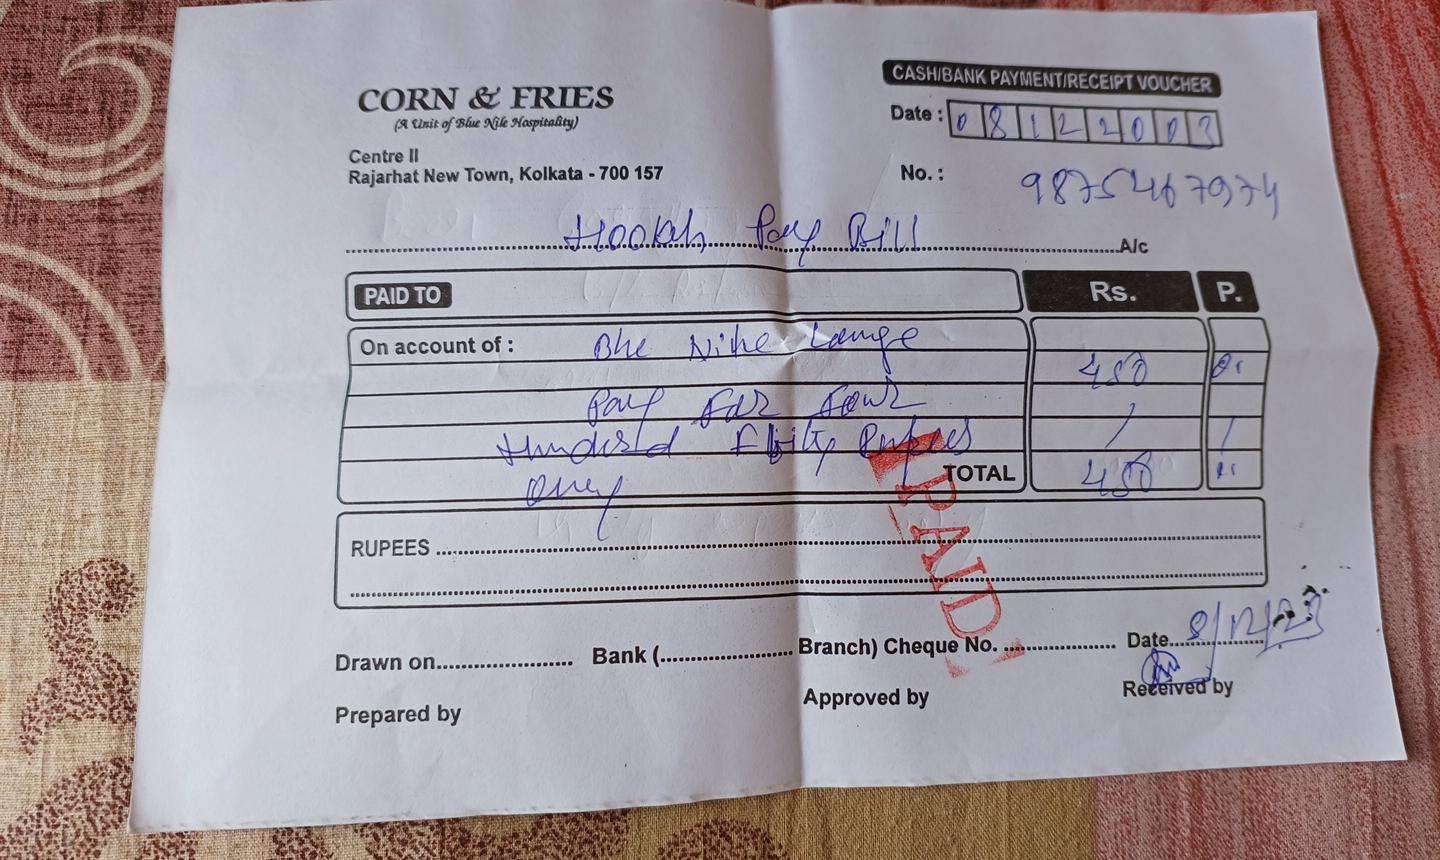 CORN & FRIES
(A Unit of Blue Nile Hospitality)
Centre II
Rajarhat New Town, Kolkata - 700 157
CASH/BANK PAYMENT/RECEIPT VOUCHER
Date : 08122003
No. : 9875467974
Hookah Pay Bill A/c
PAID TO Rs. P.
On account of : Blue Nile Lounge
450
Pay For Four
Hundred Fifity Rupees
Only TOTAL 450
PAID
RUPEES
Drawn on Bank ( Branch) Cheque No. Date 8/12/23
Prepared by Approved by Received by